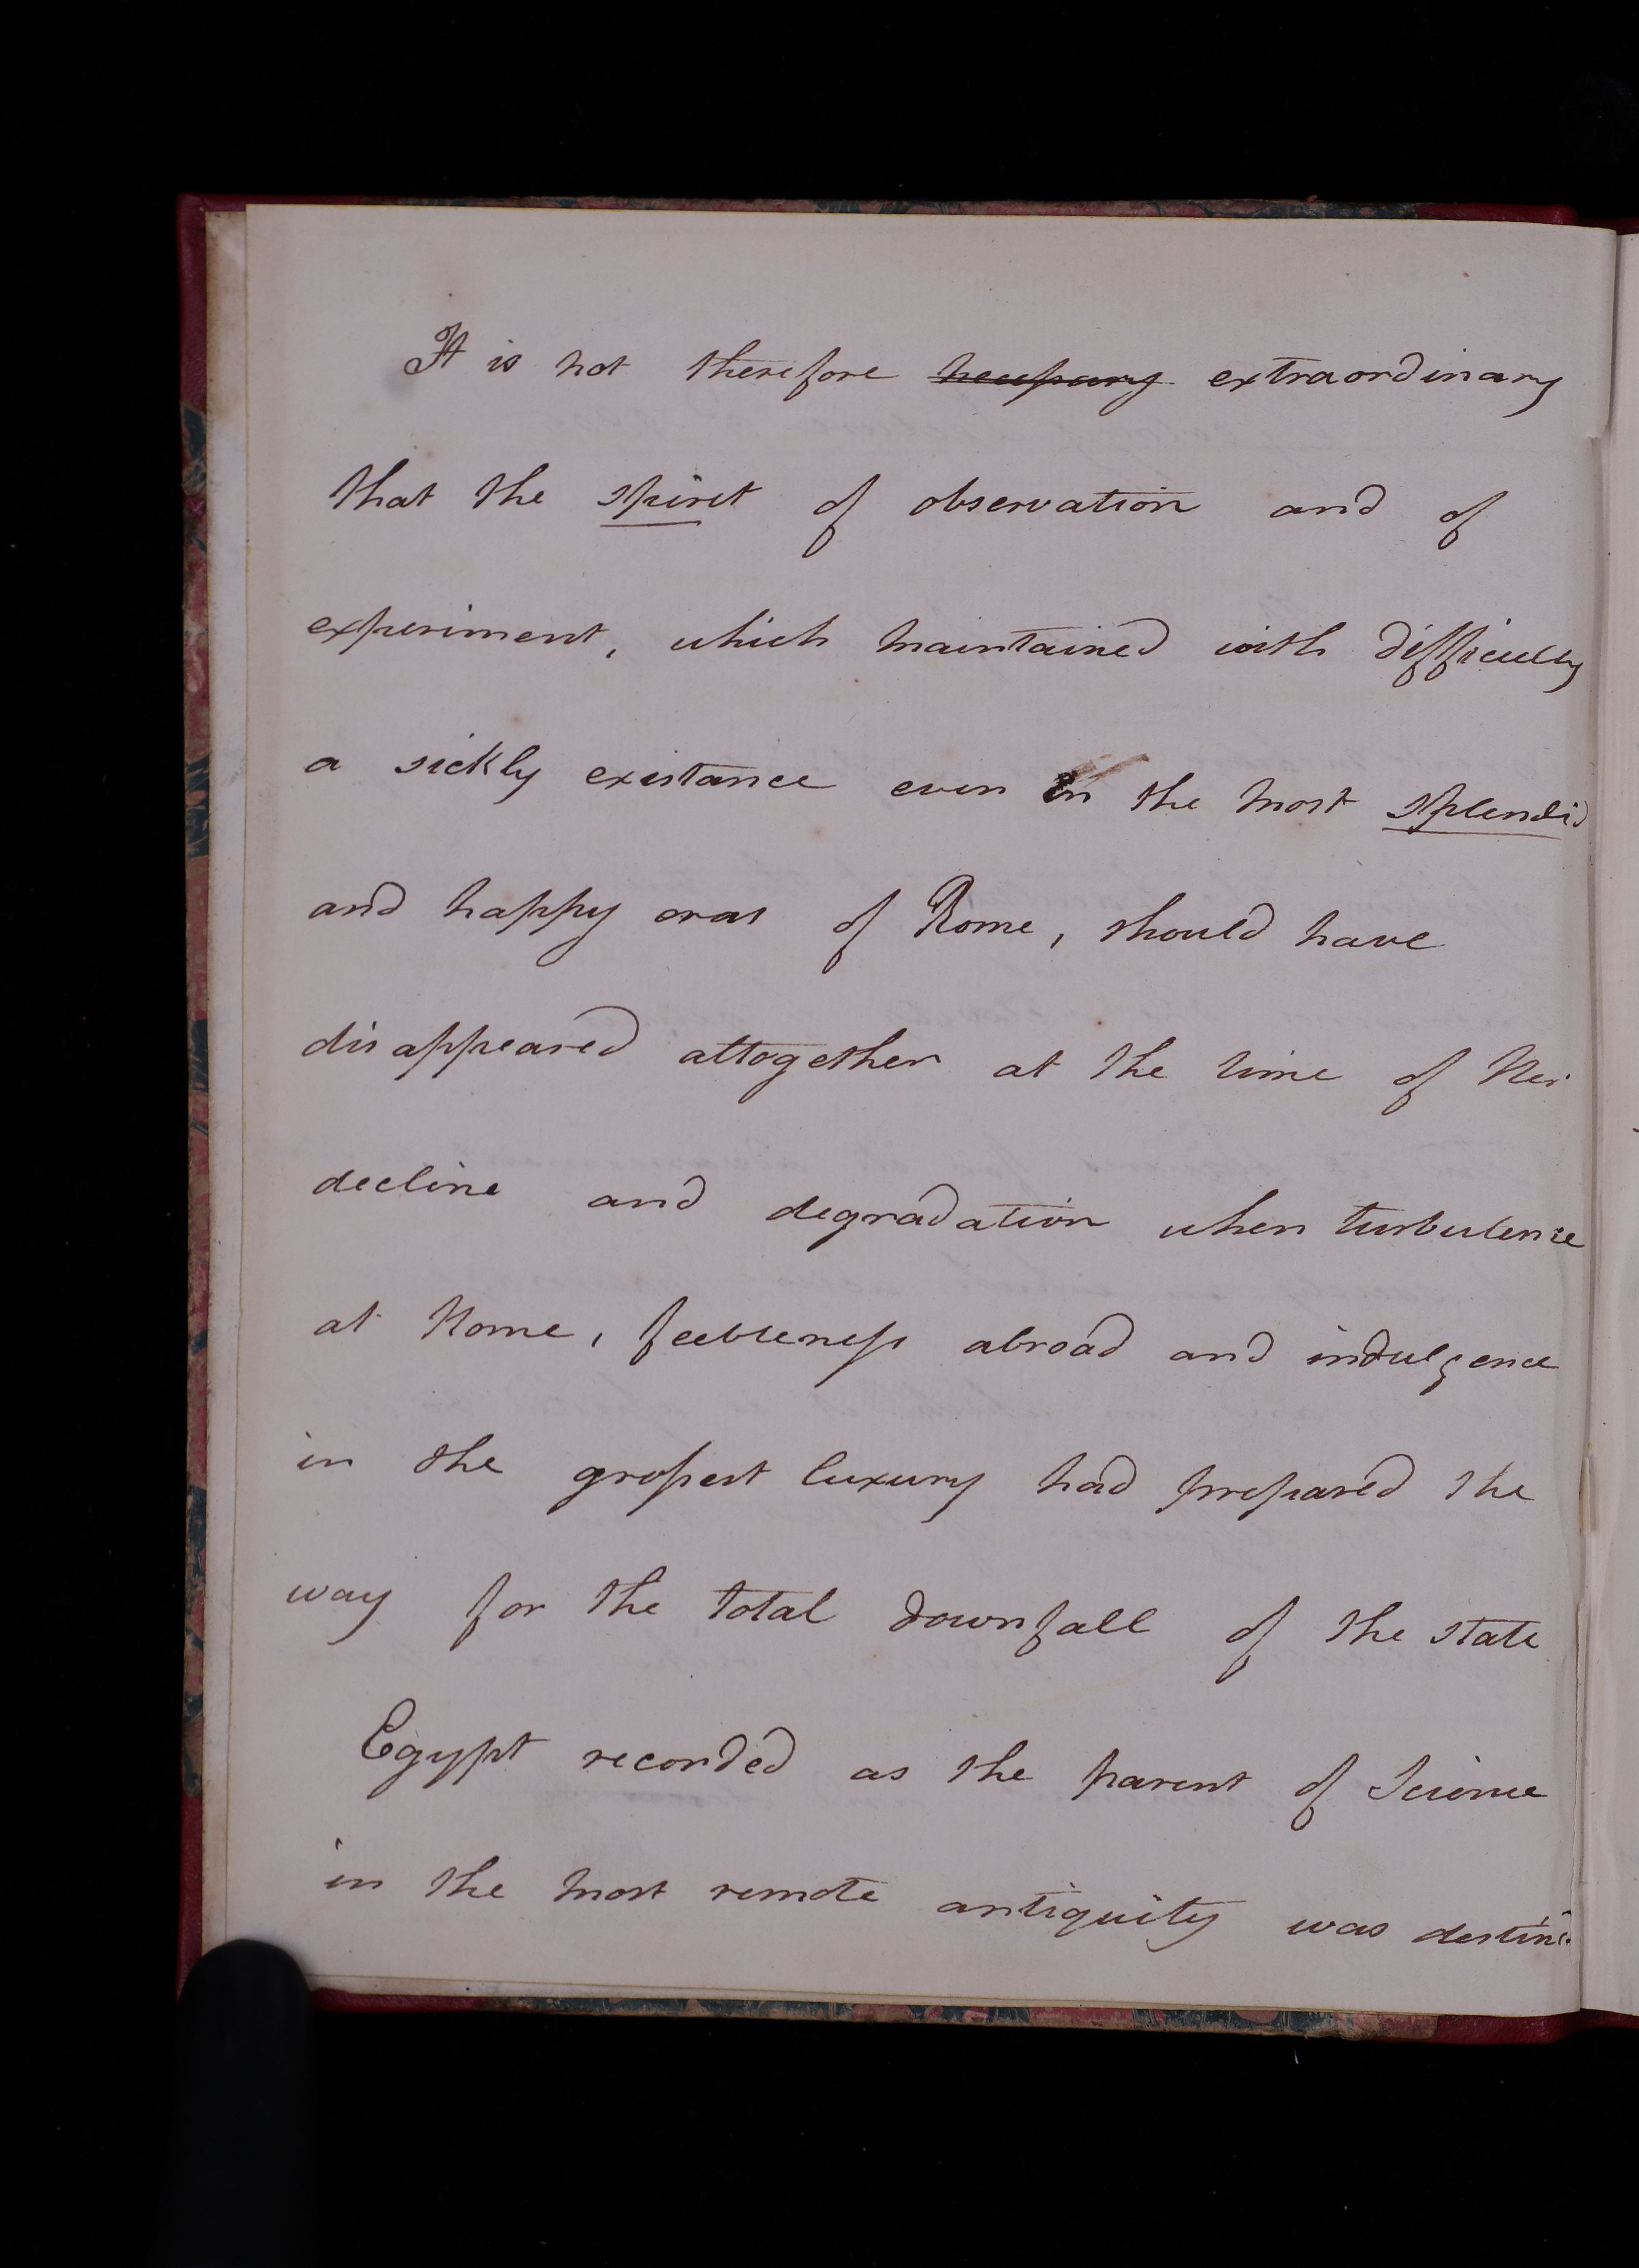 It is not therefore necessary extraordinary
that the spirit of observation and of
experiment, which maintained with difficulty
a sickly existance even in the most splendid
and happy eras of Rome, should have
disappeared altogether at the time of Her
decline and degradation when turbulence
at Home, feebleness abroad and indulgence
in the grossest luxury had prepared the
way for the total downfall of the state
Egypt recorded as the parent of Science
in the most remote antiquity was destined